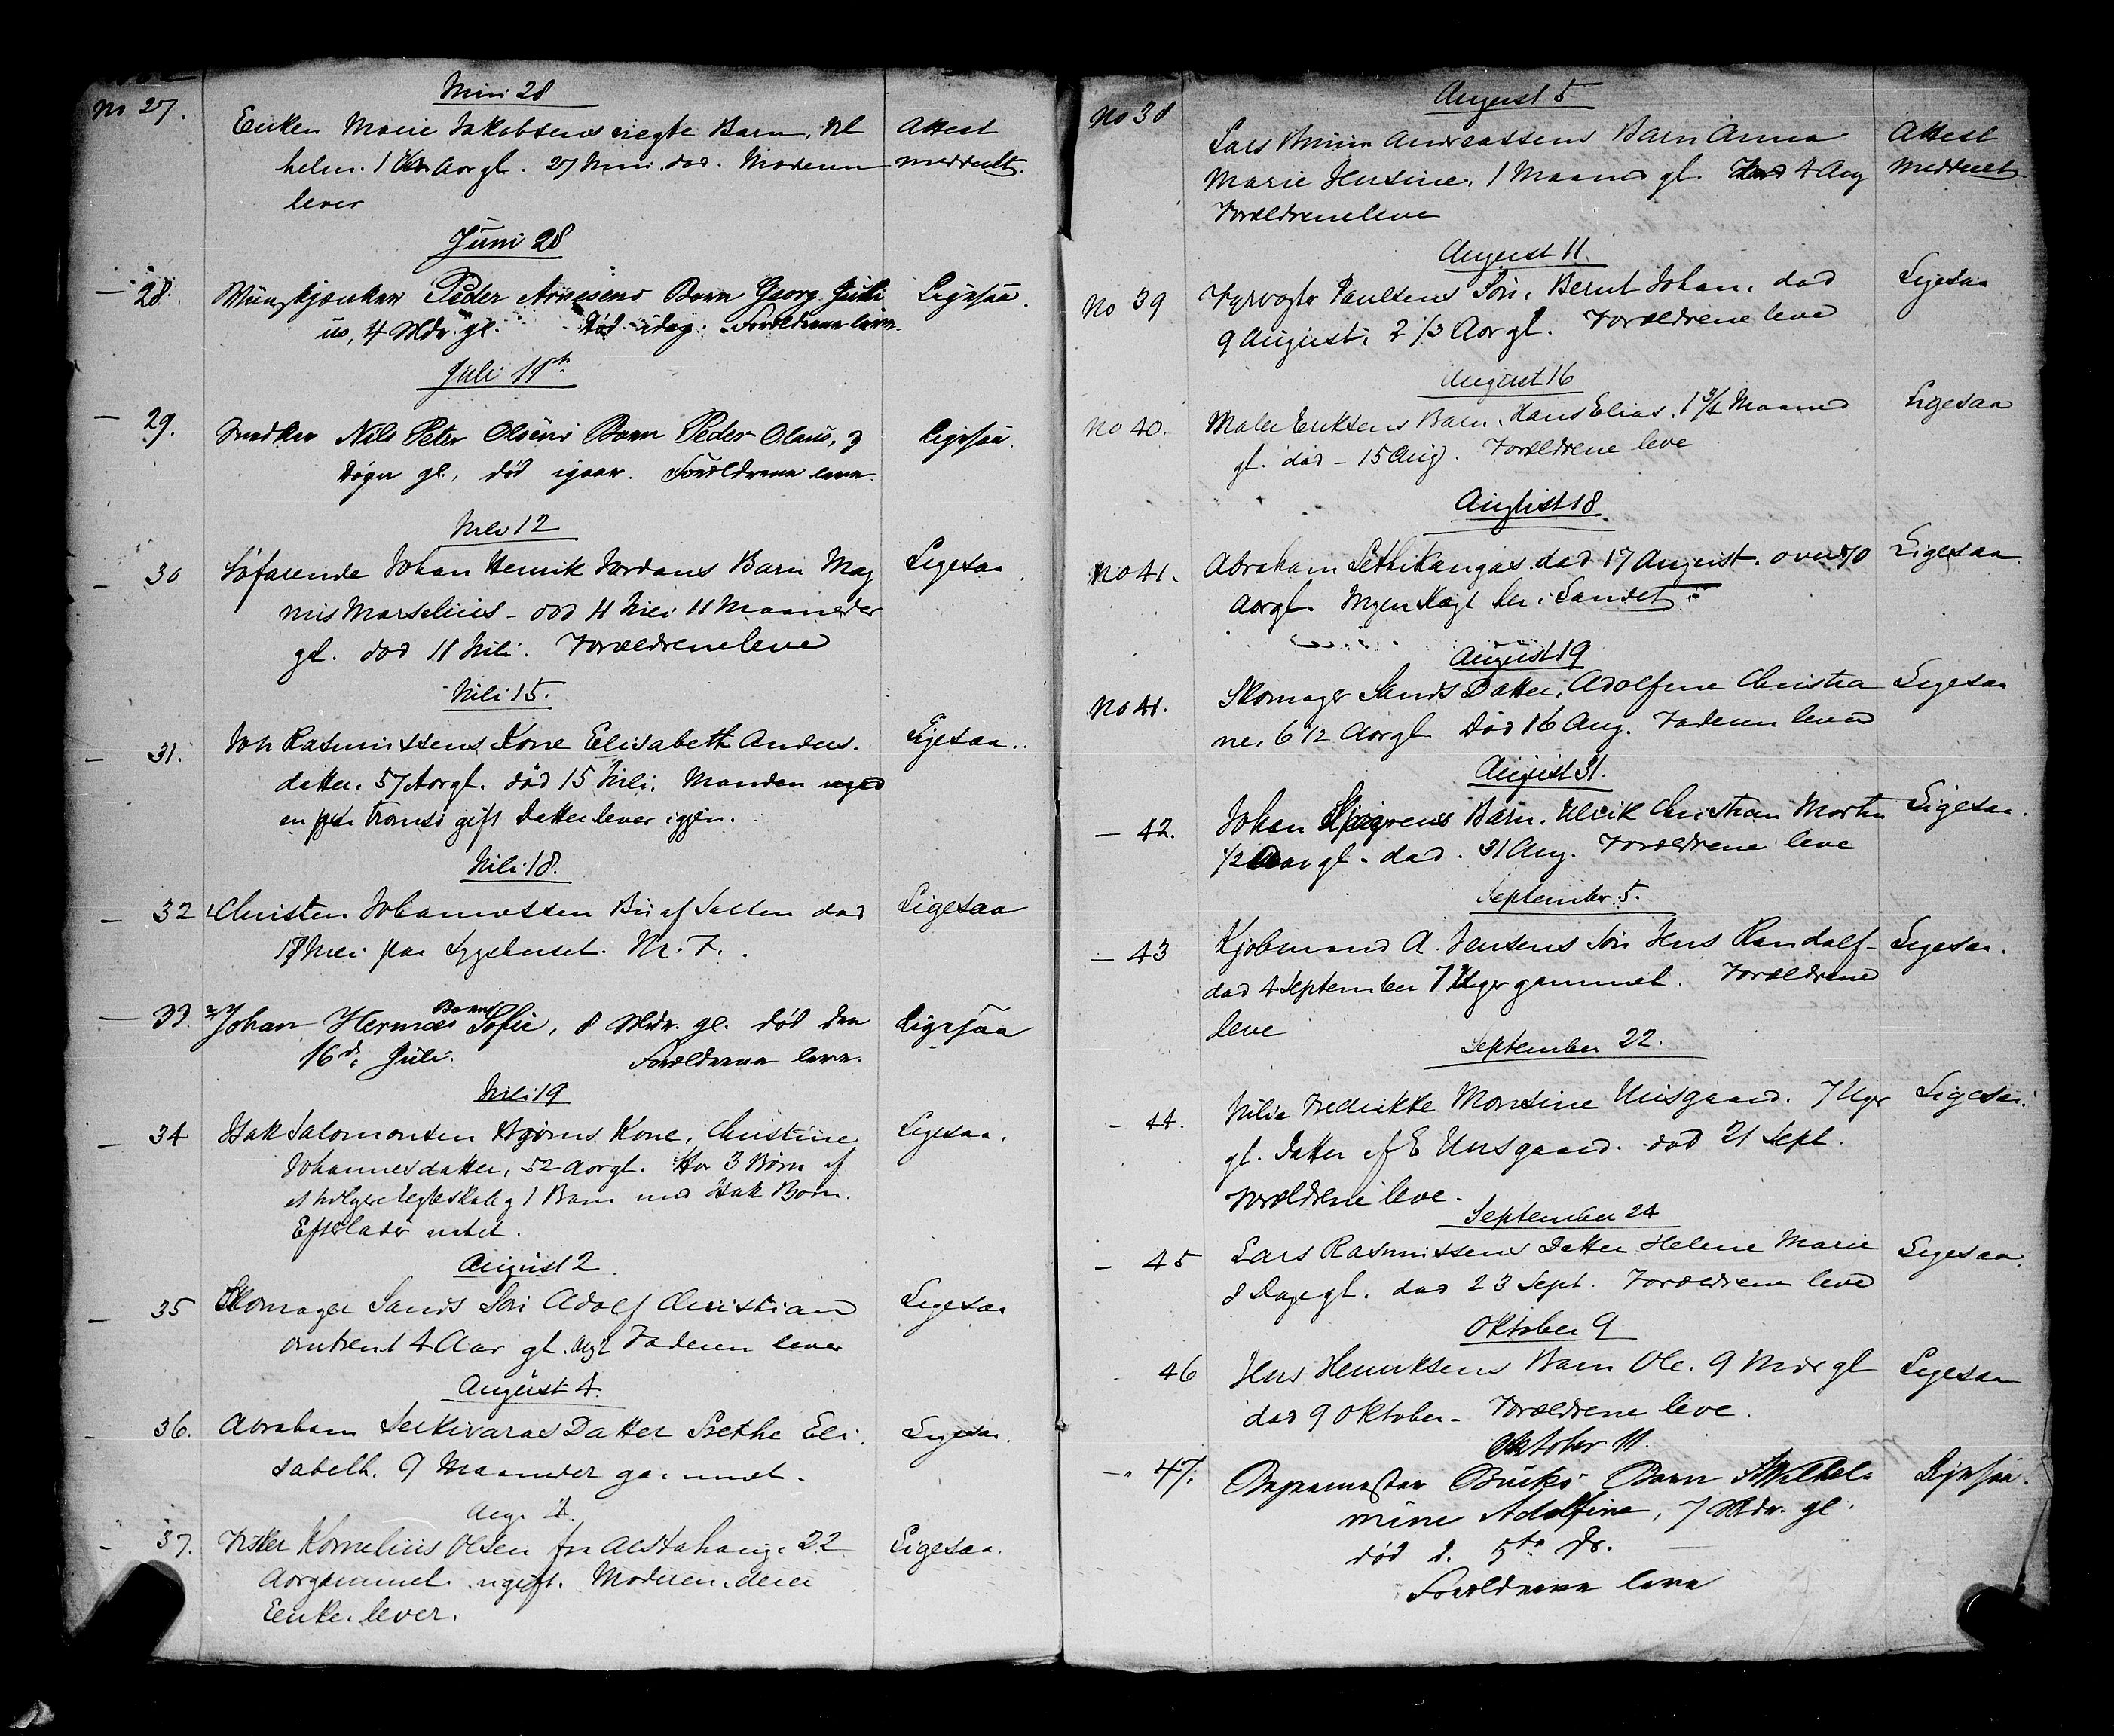 No 27.
Juni 28
Enken Marie Jakobsens uegte Barn, Vil
helm. 1 Aar gl. 27 Juni død. Moderen
lever
Attest
meddelt.
Juni 28
— 28.
Peder Arnesens Barn Georg Juli
us, 4 Mdr. gl. Død idag. Forældrene leve.
Ligesaa.
Juli 11te
— 29.
Snedker Nils Peter Olsens Barn Peder Olaus, 3
Døgn gl., død igaar. Forældrene leve.
Ligesaa.
Juli 12
— 30
Søfarende Johan Henrik Jordans Barn Mag
nus Marselius - død 11 Juli 11 Maaneder
gl. død 11 Juli. Forældrene leve
Ligesaa.
Juli 15.
— 31.
Joh Rasmussens Kone Elisabeth Anders.
datter. 57 Aar gl. død 15 Juli. Manden og
en paa Tromsø gift Datter lever igjen.
Ligesaa..
Juli 18.
— 32
Christen Johannessen af Salten død
17 Juli paa Sygehuset. M. F.
Ligesaa
— 33.
Johan Hermæs Barn Sofie, 8 Mdr. gl. død den
16de Juli. Forældrene leve.
Ligesaa
Juli 19
— 34
Isak Salomonsen Kone, Christine
Johannesdatter, 52 Aar gl. Har 3 Børn af
et tidligere Egteskab og 1 Barn med Isak
Efterlader intet.
Ligesaa.
August 2.
— 35
Skomager Sands Søn Adolf Christian
omtrent 4 Aar gl. Faderen lever
Ligesaa
August 4.
- 36.
Abraham Datter Grethe Eli.
sabeth. 9 Maaneder gammel.
Ligesaa.
Aug. 4.
- 37.
Fisker Kornelius Olsen fra 22
Aar gammel. ugift. Moderen, der er
Enke, lever.
Ligesaa.
No 38
August 5
Lars Andreassens Barn Anna
Marie Jensine. 1 Maaned gl. død 4 Aug
Forældrene leve
Attest
meddelt.
August 11.
No 39
Fyrvogter Paulsens Søn, Bernt Johan, død
9 August, 2 1/3 Aar gl. Forældrene leve
Ligesaa
August 16
No 40.
Maler Eriksens Barn, Hans Elias. 1 3/4 Maaned
gl. død - 15 Aug. Forældrene leve
Ligesaa
August 18.
No 41.
Abraham Lethikangas død 17 August. over 70
Aar gl. Ingen Slægt her i Landet.
Ligesaa.
August 19
No 41.
Skomager Sands Datter, Adolfine Christia
ne. 6 1/2 Aar gl. Død 16 Aug. Faderen lever
Ligesaa
August 31.
— 42.
Johan Barn. Ulrik Christian Martin
1/2 Aar gl. død. 31 Aug. Forældrene leve
Ligesaa.
September 5.
— 43
Kjøbmand A. Jensens Søn Jens Randolf -
død 4 September 7 Uger gammel. Forældrene
leve
Ligesaa.
September 22.
- 44.
Julie Fredrikke Monsine Unsgaard. 7 Uger
gl. Datter af E Unsgaard. død 21 Sept.
Forældrene leve.
Ligesaa.
September 24
- 45
Lars Rasmussens Datter Helene Marie
8 Dage gl. død 23 Sept. Forældrene leve
Ligesaa.
Oktober 9
46
Jens Henriksens Barn Ole. 9 Mdr gl
død 9 Oktober - Forældrene leve.
Ligesaa
Oktober 11.
- 47.
Bucks Barn Wilhel
mine Adolfine, 7 Mdr. gl.
død d. 5te ds.
Forældrene leve
Ligesaa.